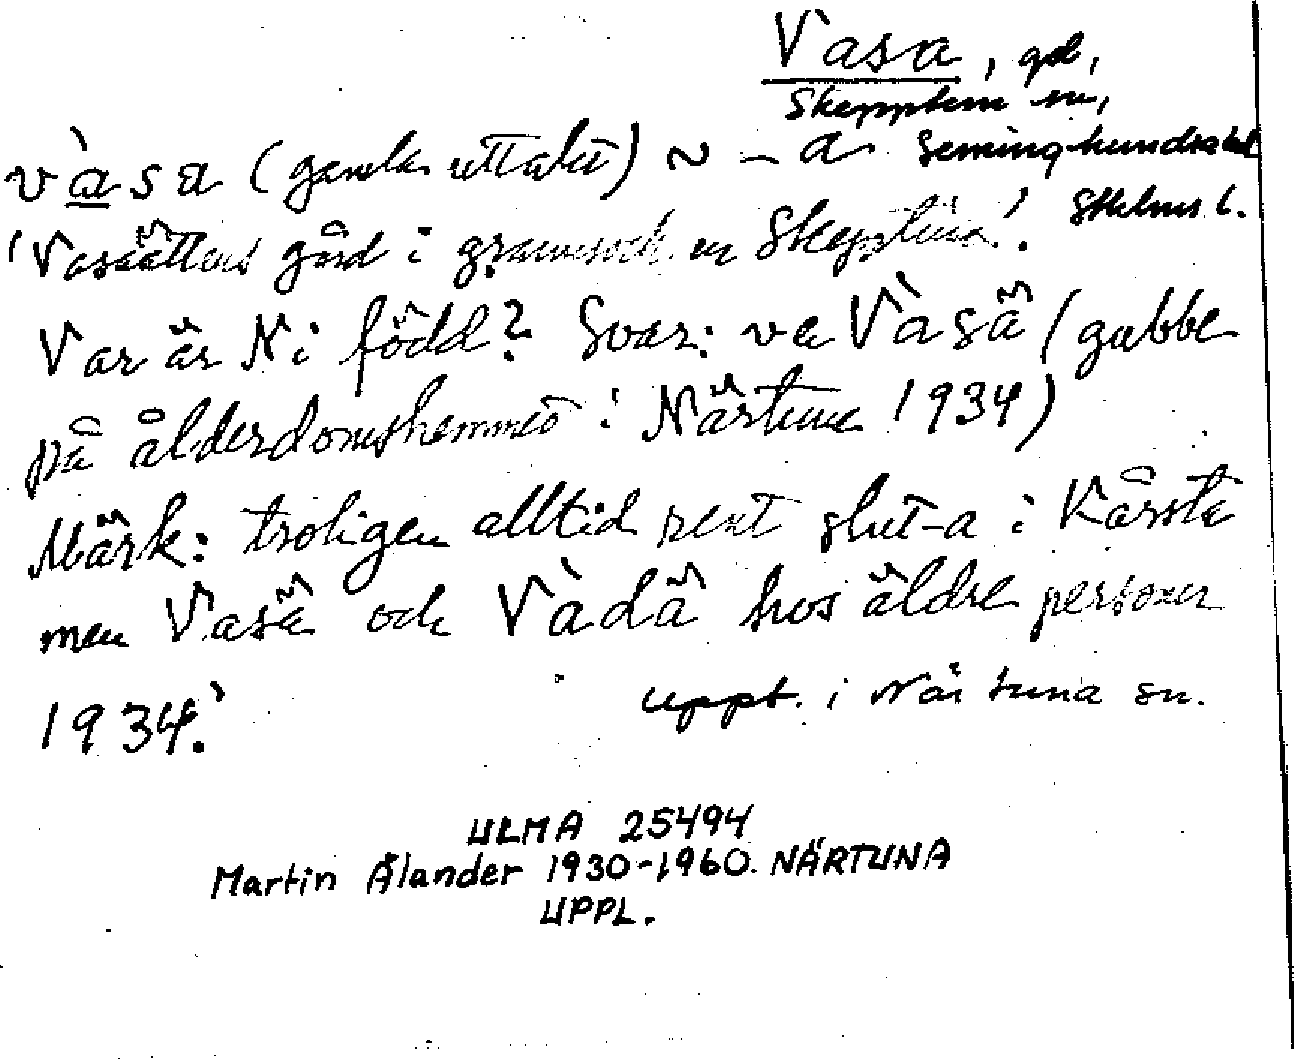 Vasa, gd,
Skepptuna sn,
Seminghundra hd
Sthlms l.
vàsa (gamla uttalet) ~ -a
'Vasaättens gård i grannsock.en Skeptuna'.
Var är Ni född? Svar: va Vàsä (gubbe
på ålderdomshemmet i Närtuna 1934)
Märk: troligen alltid rent slut-a i Kårsta
men Vasä och Vàdä hos äldre personer
1934.'
uppt. i Närtuna sn.
ULMA 25494
Martin Ålander 1930-1960. NÄRTUNA
UPPL.